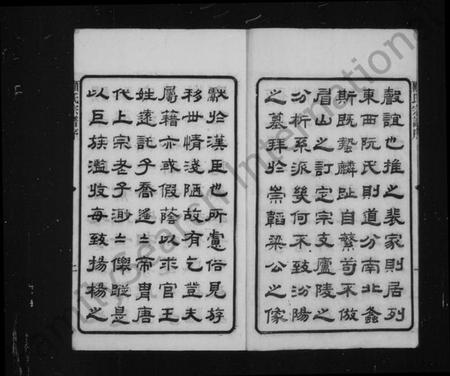 誼也推之裴家則居列
東西阮氏則道分南北螽
斯既蟄麟趾自繁苟不倣
眉山之訂定宗支廬陵之
分析系派幾何不致汾陽
之墓拜於崇韜梁公之像
獻於漢臣也所慮俗見旋
移世情淺陋故有乞登夫
屬籍亦或假蔭以求官王
姓遠託子喬遙〻帝胄唐
代上宗老子渺〻僊蹤是
以巨族濫收每致揚揚之